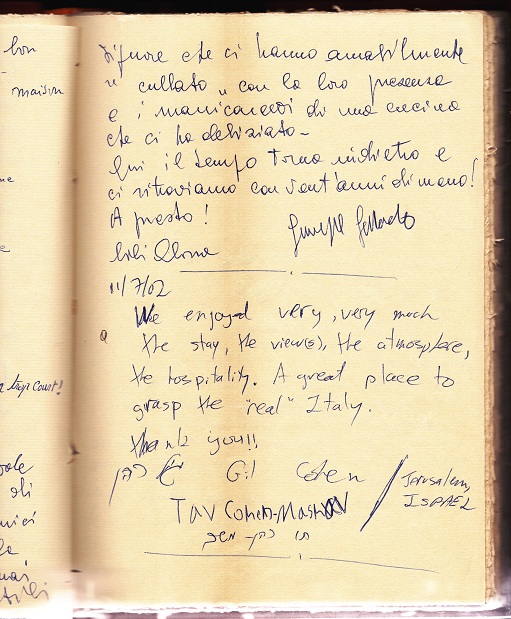 bon
maison
trop court!
signore che ci hanno amabilmente
"cullato" con la loro presenza
e i manicaretti di una cucina
che ci ha deliziato -
Qui il tempo torna indietro e
ci ritroviamo con vent'anni di meno!
A presto!
11/7/02
We enjoyed very, very much
the stay, the view(s), the atmosphere,
the hospitality. A great place to
grasp the "real" Italy.
thank you!!
גיל כהן Gil Cohen / Jerusalem,
ISRAEL
Tav Cohen-
תו כהן-